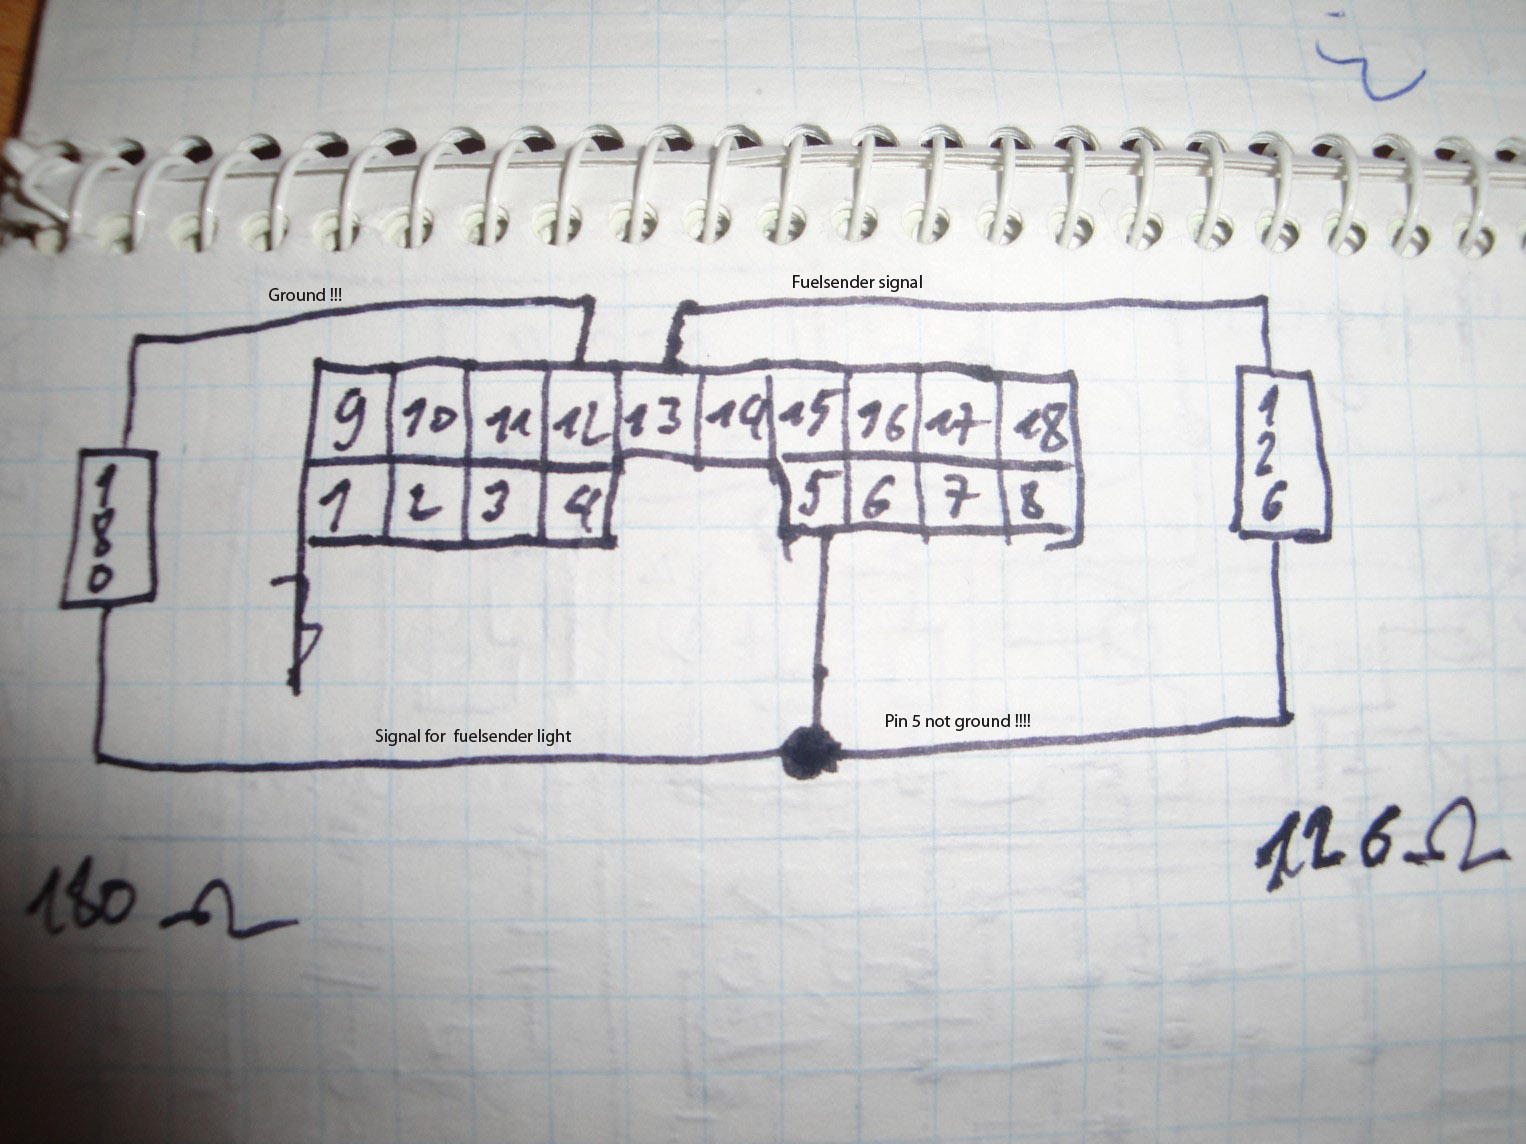 Fuelsender signal
Ground !!!
9 10 11 12 13 14 15 16 17 18
1 2 3 4 5 6 7 8
1
8
0
1
2
6
Pin 5 not ground !!!!
Signal for fuelsender light
126Ω
180 Ω